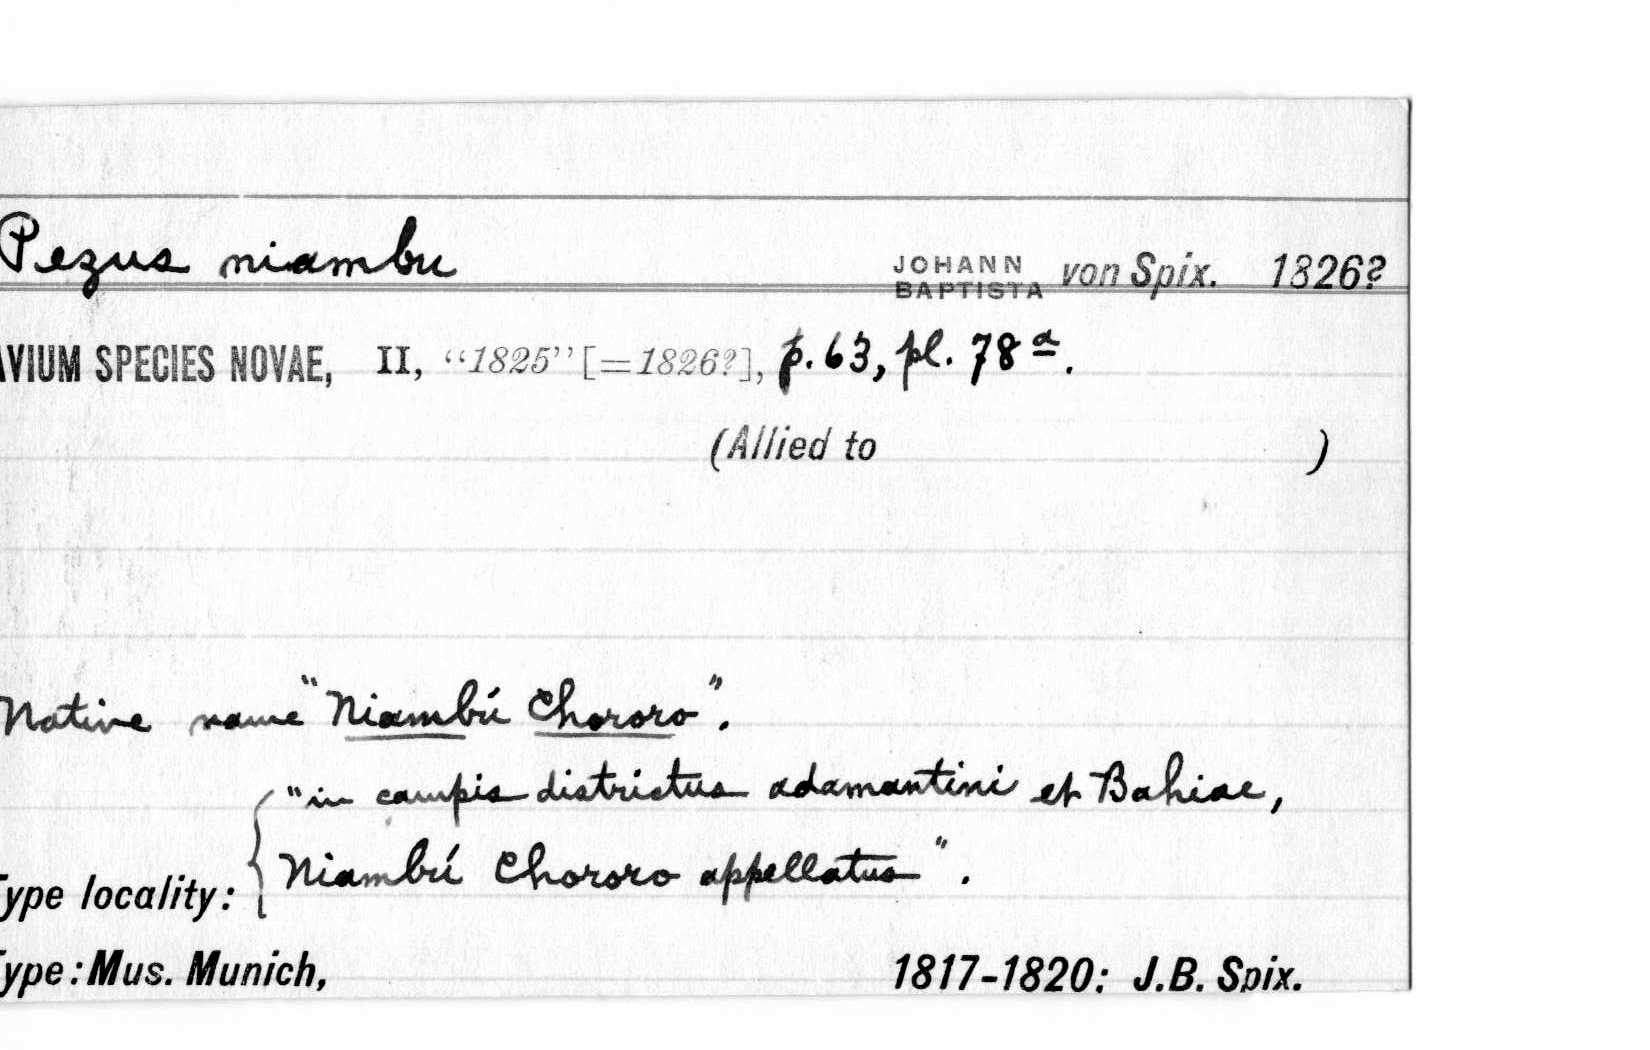 Pezus niambu JOHANN BAPTISTA von Spix. 1826?
AVIUM SPECIES NOVAE, II, "1825" [=1826?], p. 63, pl. 78ª.
(Allied to )
Native name "Niambú Chororo".
"in campis districtus adamantini et Bahiae,
Type locality: { Niambú Chororo appellatus".
Type: Mus. Munich, 1817-1820: J.B. Spix.